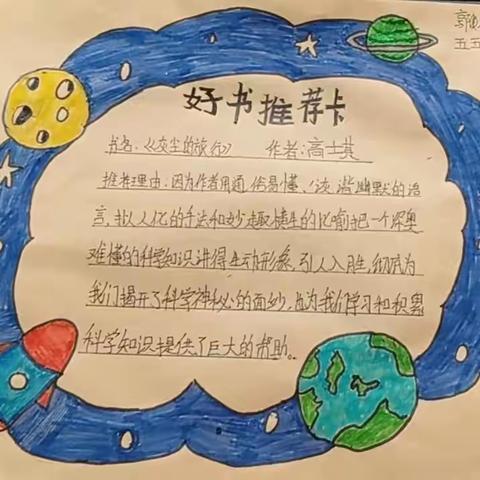 好书推荐卡
书名:《灰尘的旅行》 作者:高士其
推荐理由:因为作者用通俗易懂、诙谐幽默的语
言,拟人化的手法和妙趣横生的比喻把一个深奥
难懂的科学知识讲得生动形象,引人入胜,彻底为
我们揭开了科学神秘的面纱,也为我们学习和积累
科学知识提供了巨大的帮助。
五五